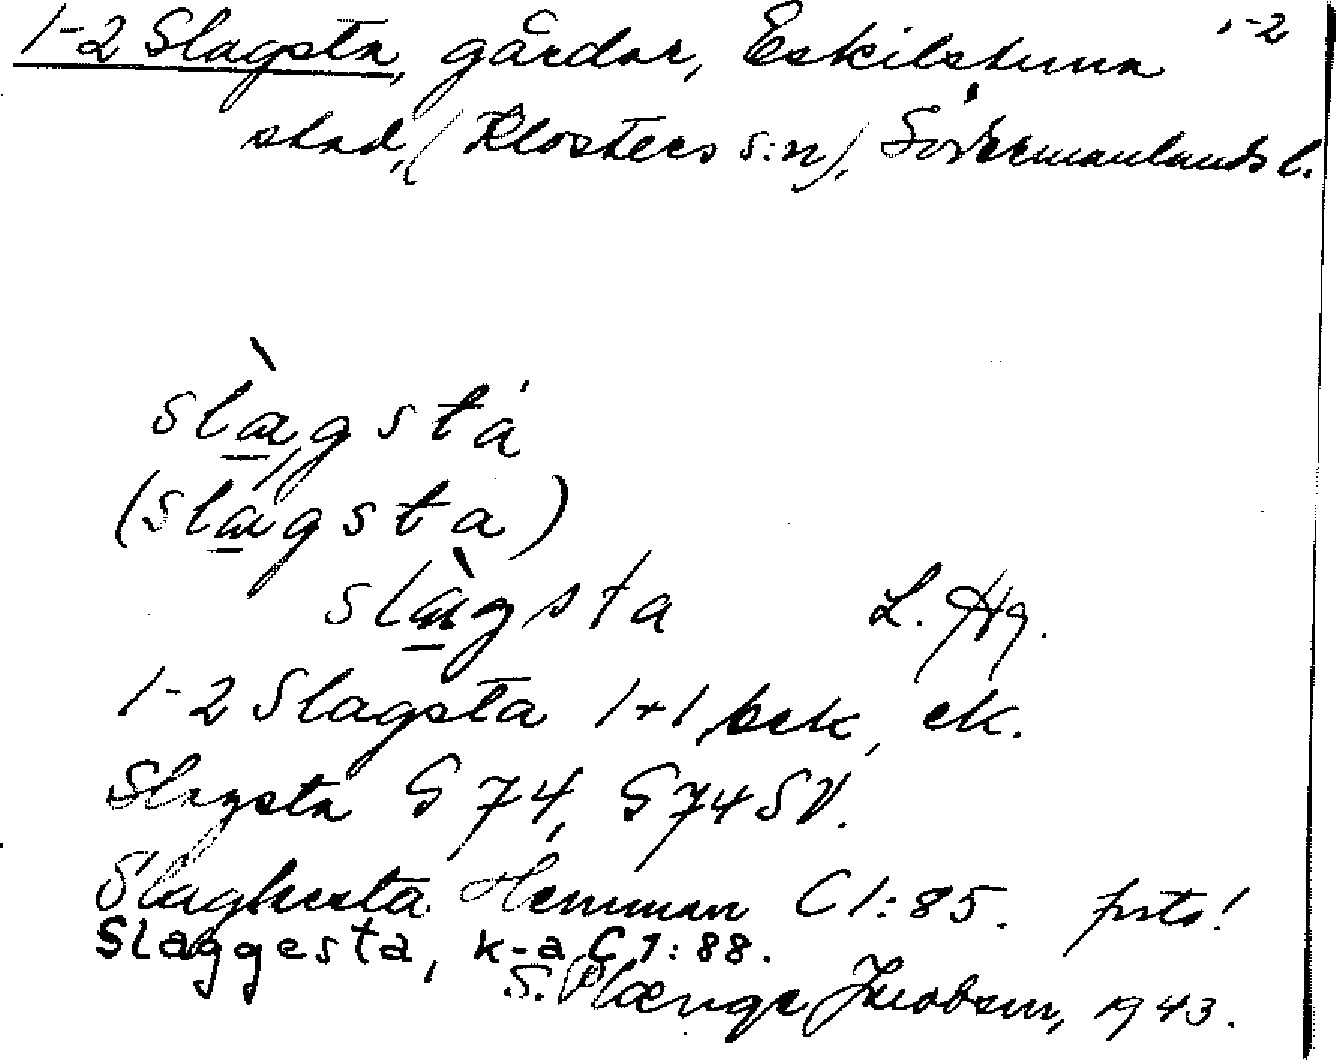 1-2 Slagsta, gårdar, Eskilstuna 1-2
stad, (Klosters s:n), Södermanlands l.
slàgstá
(slágsta)
slàgsta L. Hg.
1-2 Slagsta 1+1, bek, ek.
Slagsta G 74, G 74 SV.
Slaghesta Hemman C 1:85. forts!
Slaggesta, k-a C 1:88.
S. Plænge Jacobson, 1943.